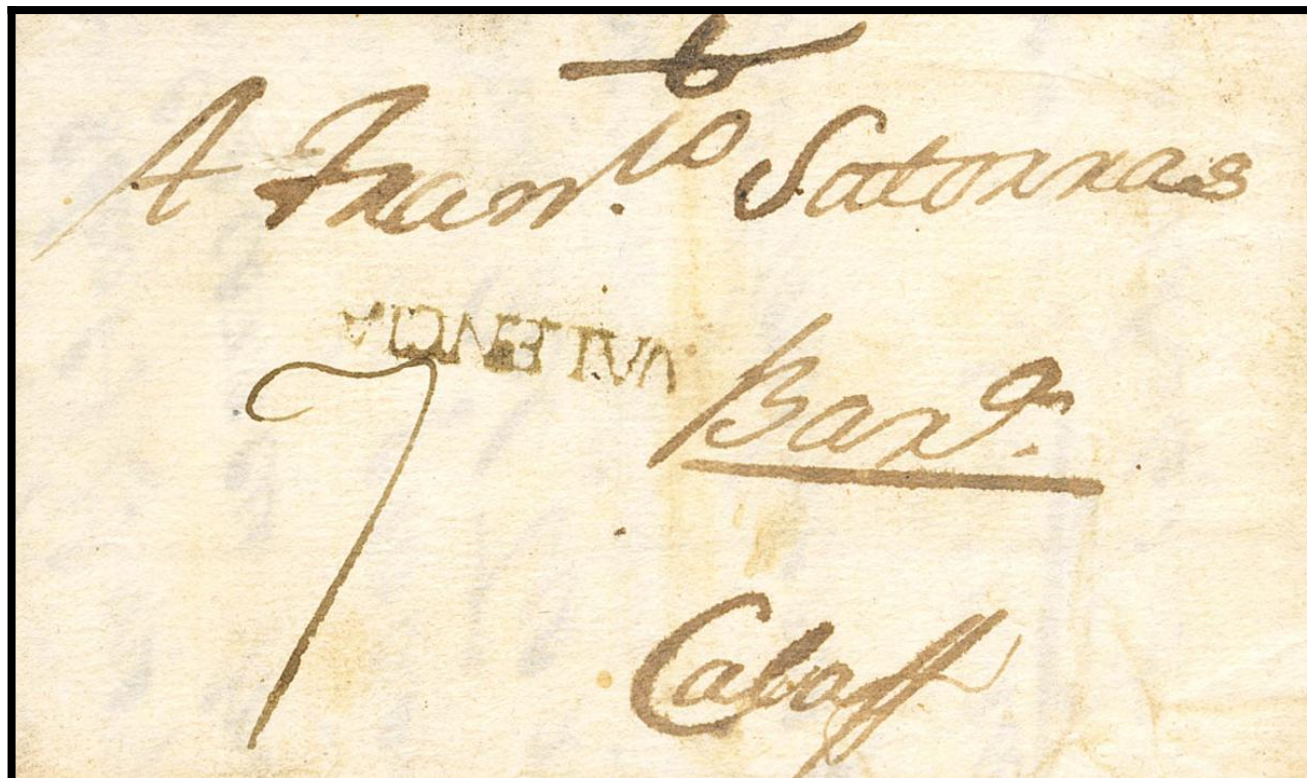 6
A Fran.co Satorras
VALENCIA
7
Barª.